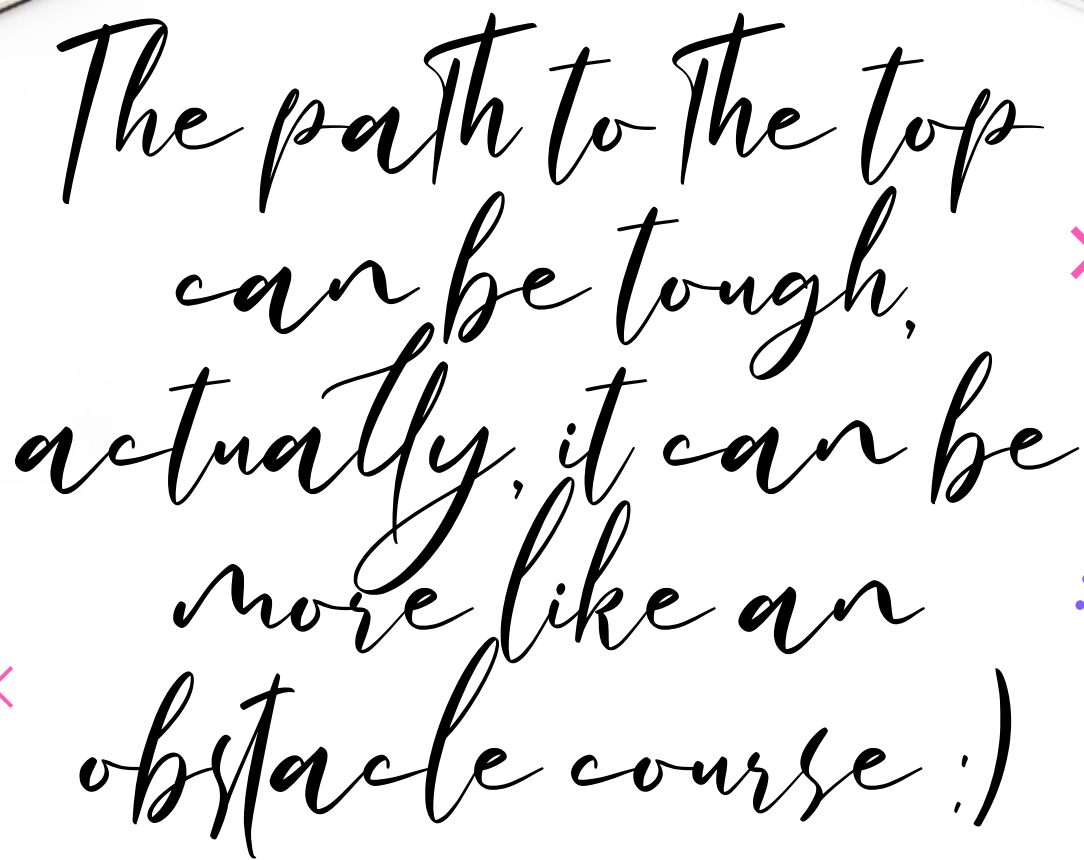 The path to the top
can be tough,
actually, it can be
more like an
obstacle course :)